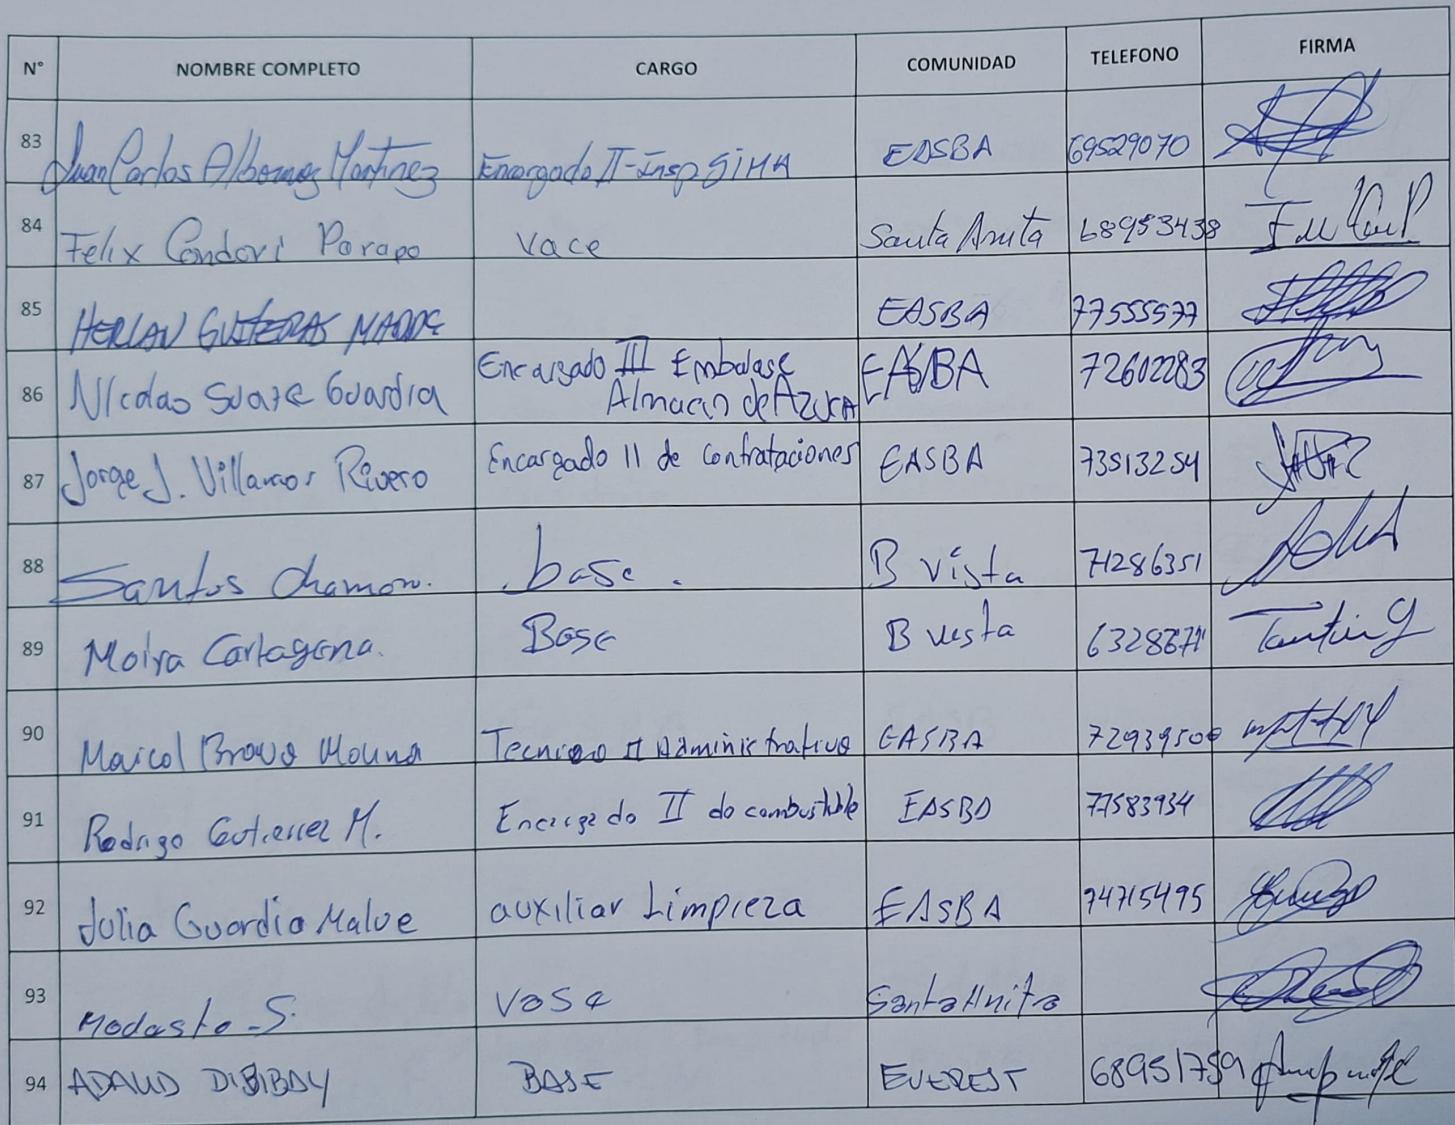 N° NOMBRE COMPLETO CARGO COMUNIDAD TELEFONO FIRMA
83 Juan Carlos Albornoz Martinez Encargado II-Insp SIMA EASBA 69529070
84 Felix Condori Parapo vace Santa Anita 68953438
85 HERLAN EASBA 77555577
86 Nicolas Suare Guardia Encargado III Embalase EASBA 72602283
Almacen de Azucar
87 Jorge J. Villarroel Rivero Encargado II de contrataciones EASBA 73513254
88 Santos Chamon. base. B vista 71286351
89 Moira Cartagena. Base B vista
90 Maicol Bravo Molina Tecnico II Administrativo EASBA 72939500
91 Rodrigo Gutierrez M. Encargado II de combustible EASBA 77583934
92 Julia Guardia Malue auxiliar Limpieza EASBA 74715495
93 Modasto S. vase Santa Anita
94 BASE EVEREST 68951759